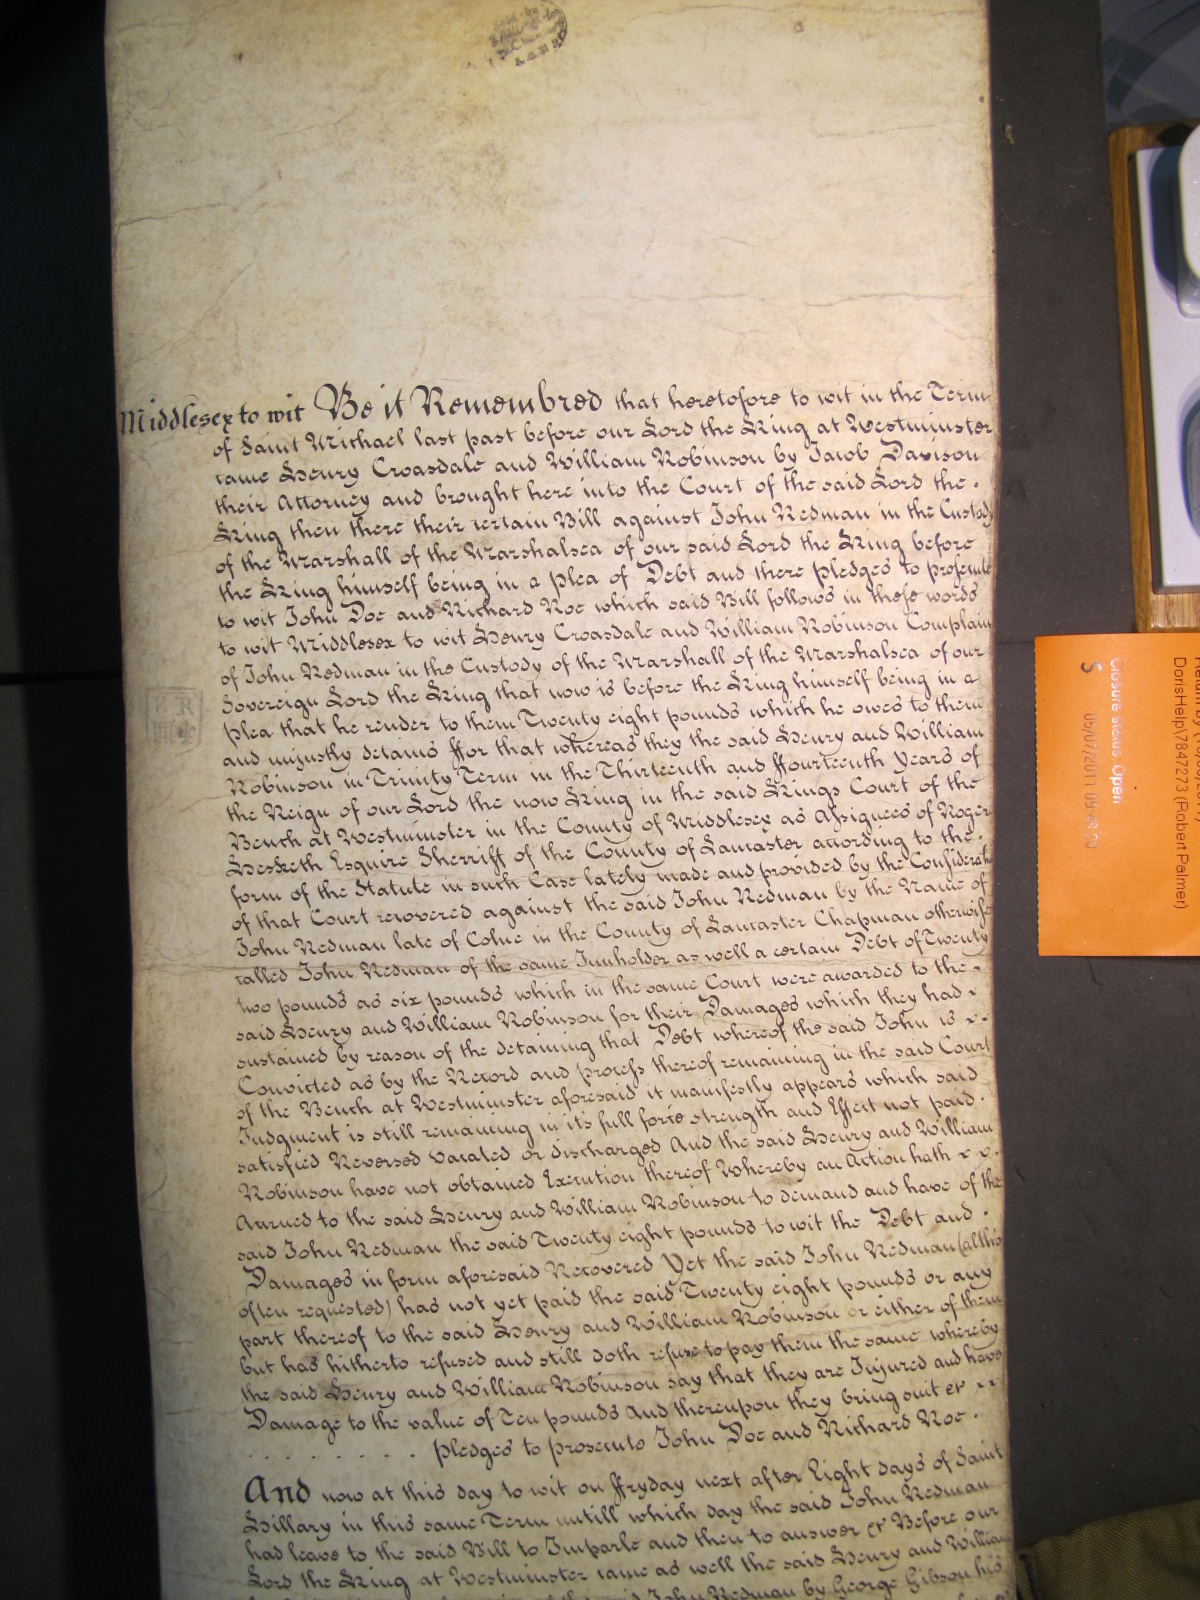 Middlesex to wit Be it Remembred that heretofore to wit in the Term
of Saint Michael last past before our Lord the King at Westminster
came Henry Croasdale and William Robinson by Jacob Davison
their Attorney and brought here into the Court of the said Lord the
King then there their certain Bill against John Redman in the Custody
of the Marshall of the Marshalsea of our said Lord the King before
the King himself being in a plea of Debt and there pledges to prosecute
to wit John Doe and Richard Roe which said Bill follows in these words
to wit Middlesex to wit Henry Croasdale and William Robinson Complain
of John Redman in the Custody of the Marshall of the Marshalsea of our
Sovereign Lord the King that now is before the King himself being in a
plea that he render to them Twenty eight pounds which he owes to them
and unjustly detains ffor that whereas they the said Henry and William
Robinson in Trinity Term in the Thirteenth and ffourteenth Years of
the Reign of our Lord the now King in the said Kings Court of the
Bench at Westminster in the County of Middlesex as Assignees of Roger
Hesketh Esquire Sherriff of the County of Lancaster according to the
form of the Statute in such Case lately made and provided by the
of that Court recovered against the said John Redman by the Name of
John Redman late of Colne in the County of Lancaster Chapman otherwise
called John Redman of the same Innholder as well a certain Debt of Twenty
two pounds as six pounds which in the same Court were awarded to the
said Henry and William Robinson for their Damages which they had
sustained by reason of the detaining that Debt whereof the said John is
Convicted as by the Record and process thereof remaining in the said Court
of the Bench at Westminster aforesaid it manifestly appears which said
Judgment is still remaining in its full force strength and Effect not paid
satisfied Reversed vacated or discharged And the said Henry and William
Robinson have not obtained Execution thereof Whereby an Action hath
Accrued to the said Henry and William Robinson to demand and have of the
said John Redman the said Twenty eight pounds to wit the Debt and
Damages in form aforesaid Recovered Yet the said John Redman (altho
often requested) has not yet paid the said Twenty eight pounds or any
part thereof to the said Henry and William Robinson or either of them
but has hitherto refused and still doth refuse to pay them the same whereby
the said Henry and William Robinson say that they are Injured and have
Damage to the value of Ten pounds And thereupon they bring suit &c
pledges to prosecute John Doe and Richard Roe
And now at this day to wit on ffryday next after Eight days of Saint
Hillary in this same Term untill which day the said John Redman
had leave to the said Bill to Imparle and then to answer &c Before our
Lord the King at Westminster came as well the said Henry and William
John Redman by George Gibson his
Closure status Open
5
05/07/2011 09:43:0
DorisHelp\7847273 (Robert Palmer)